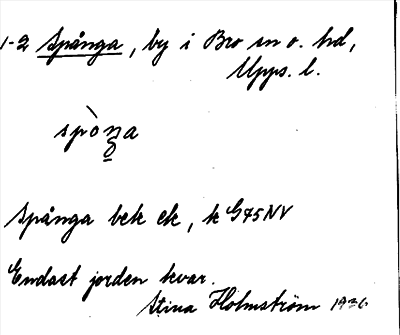 1-2 Spånga, by i Bro sn o. hd,
Upps. l.
spòŋa
Spånga bek ek, k G45NV
Endast jorden kvar.
Stina Holmström 1936